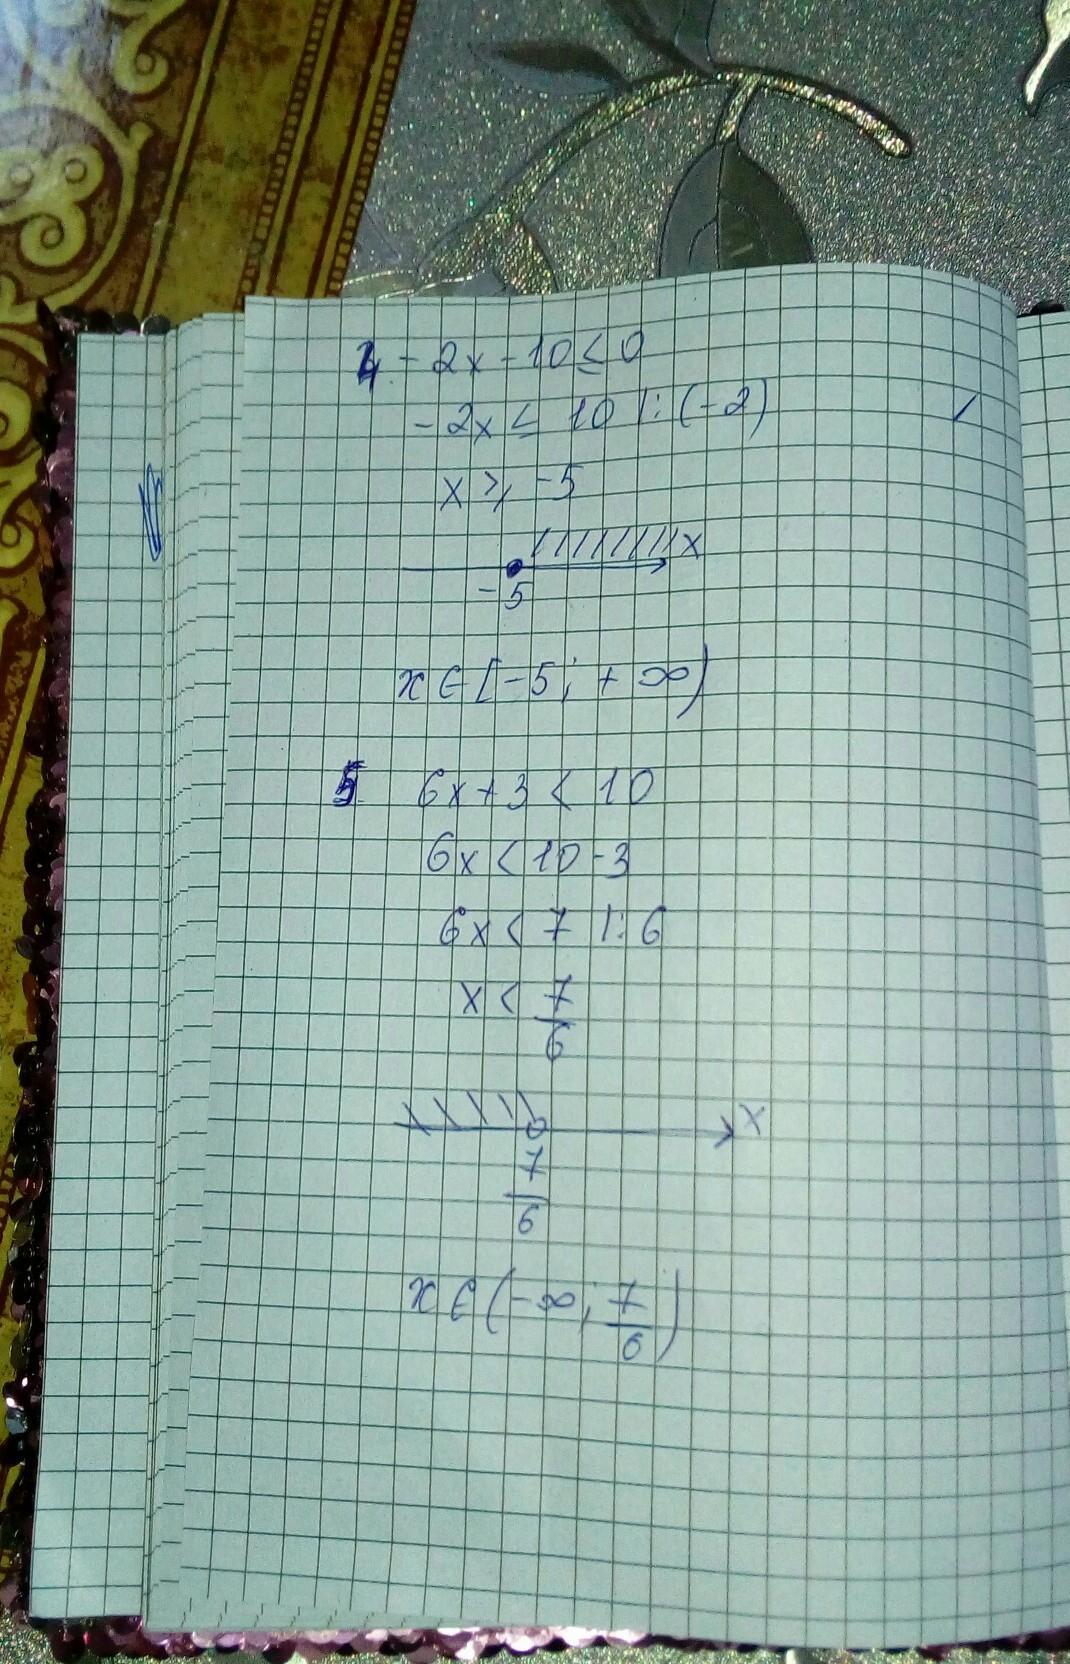 4. -2x-10≤0
-2x ≤ 10 |:(-2)
x ⩾ -5
x
-5
x∈[-5; +∞)
5. 6x+3 < 10
6x < 10-3
6x < 7 |:6
x < 7/6
x
7/6
x∈(-∞; 7/6)